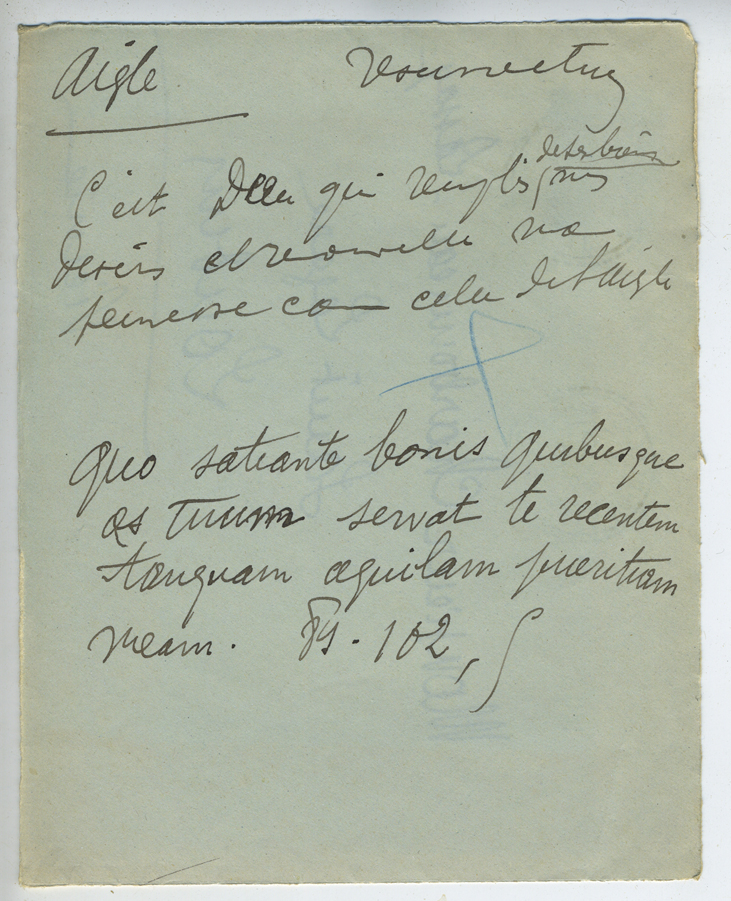 Aigle
C'est Dieu qui remplis de ses biens nos
desirs et renouvelle
jeunesse com celle de l'aigle
Quo satiante bonis quibusque
os tuum servat te recentem
tanquam aquilam pueritiam
meam. Ps. 102,